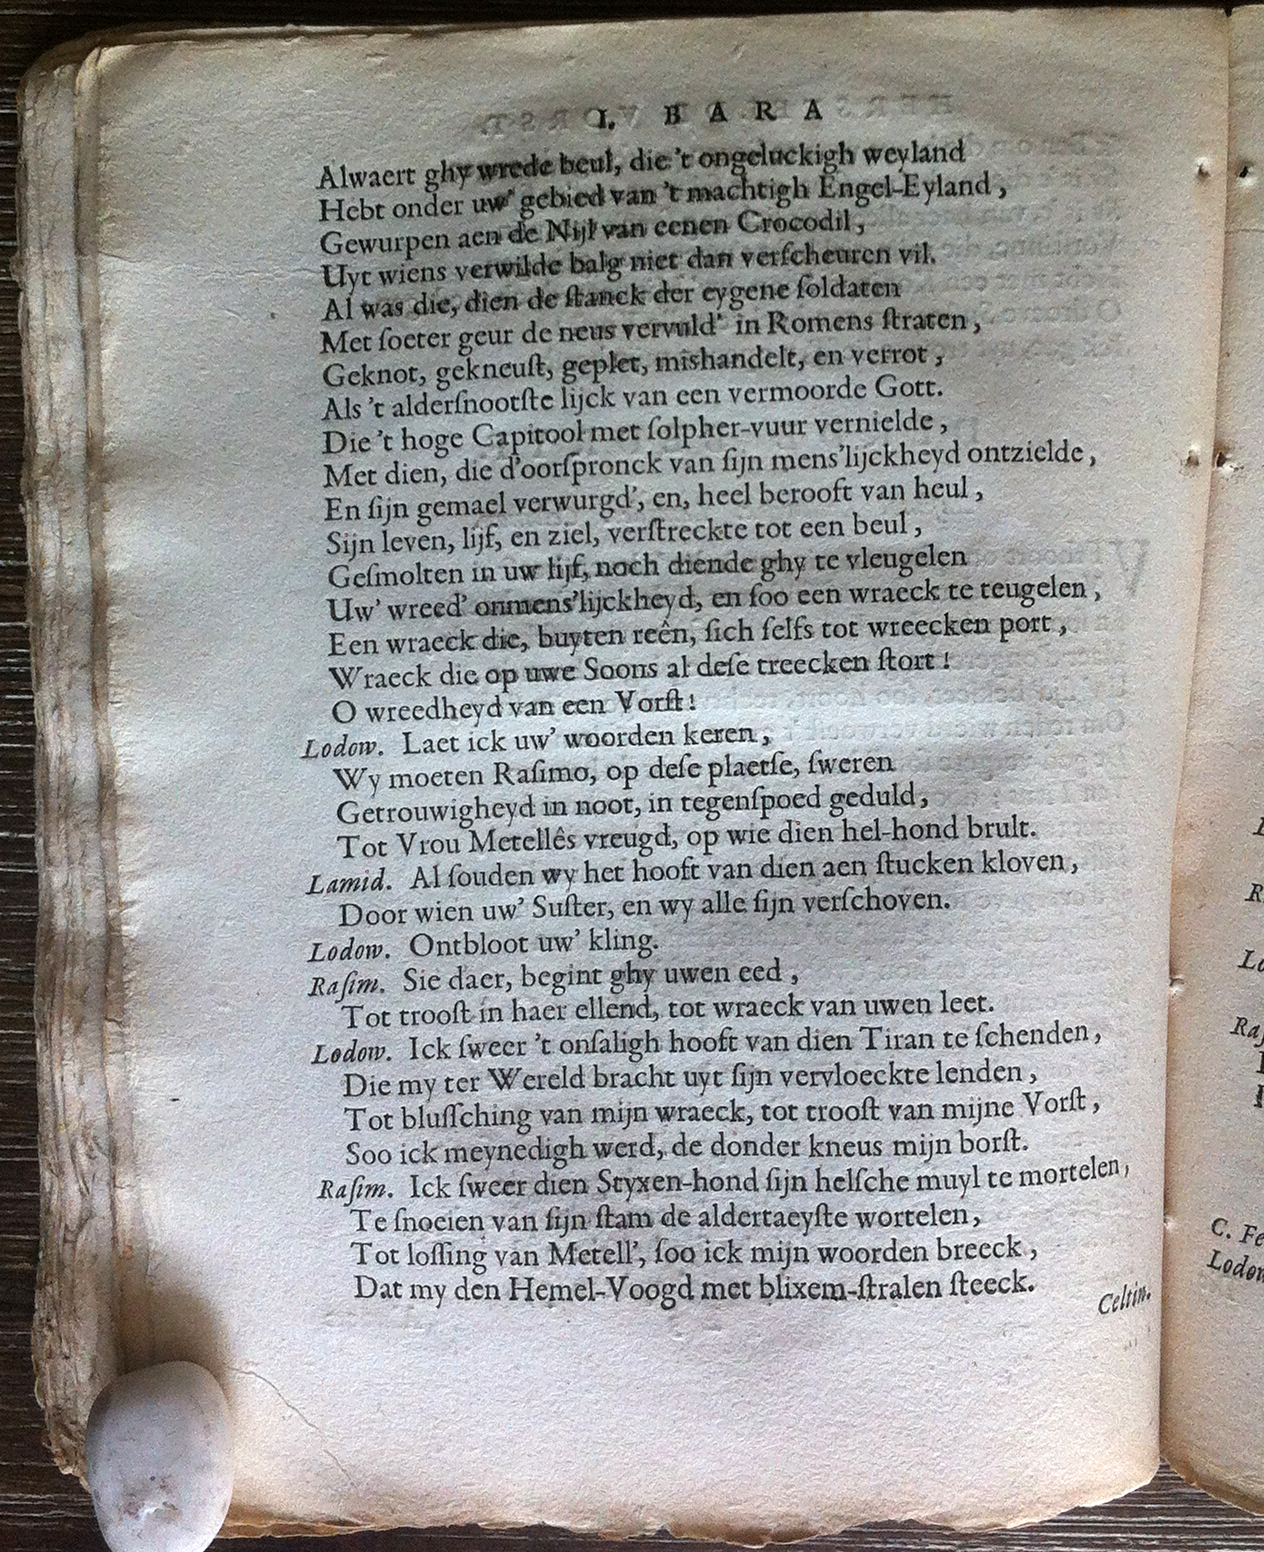 I. BARA
Alwaert ghy wrede beul, die 't ongeluckigh weyland
Hebt onder uw' gebied van 't machtigh Engel-Eyland,
Gewurpen aen de Nijl van eenen Crocodil,
Uyt wiens verwilde balg niet dan verſcheuren vil.
Al was die, dien de ſtanck der eygene ſoldaten
Met ſoeter geur de neus vervuld' in Romens ſtraten,
Geknot, gekneuſt, geplet, mishandelt, en verrot,
Als 't alderſnootſte lijck van een vermoorde Gott.
Die 't hoge Capitool met ſolpher-vuur vernielde,
Met dien, die d'oorſpronck van ſijn mens'lijckheyd ontzielde,
En ſijn gemael verwurgd', en, heel berooft van heul,
Sijn leven, lijf, en ziel, verſtreckte tot een beul,
Geſmolten in uw lijf, noch diende ghy te vleugelen
Uw' wreed' onmens'lijckheyd, en ſoo een wraeck te teugelen,
Een wraeck die, buyten reên, ſich ſelfs tot wreecken port,
Wraeck die op uwe Soons al deſe treecken ſtort!
O wreedheyd van een Vorſt!
Lodow. Laet ick uw' woorden keren,
Wy moeten Raſimo, op deſe plaetſe, ſweren
Getrouwigheyd in noot, in tegenſpoed geduld,
Tot Vrou Metellês vreugd, op wie dien hel-hond brult.
Lamid. Al ſouden wy het hooft van dien aen ſtucken kloven,
Door wien uw' Suſter, en wy alle ſijn verſchoven.
Lodow. Ontbloot uw' kling.
Raſim. Sie daer, begint ghy uwen eed,
Tot trooſt in haer ellend, tot wraeck van uwen leet.
Lodow. Ick ſweer 't onſaligh hooft van dien Tiran te ſchenden,
Die my ter Wereld bracht uyt ſijn vervloeckte lenden,
Tot bluſſching van mijn wraeck, tot trooſt van mijne Vorſt,
Soo ick meynedigh werd, de donder kneus mijn borſt.
Raſim. Ick ſweer dien Styxen-hond ſijn helſche muyl te mortelen,
Te ſnoeien van ſijn ſtam de aldertaeyſte wortelen,
Tot loſſing van Metell', ſoo ick mijn woorden breeck,
Dat my den Hemel-Voogd met blixem-ſtralen ſteeck.
Celtin.
C. Fe
Lodow